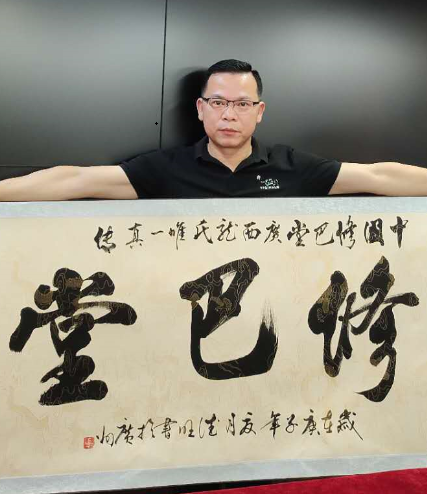 中國修巴堂廣西龍氏唯一真傳
修巴堂
歲在庚子年夏月旺書於廣州